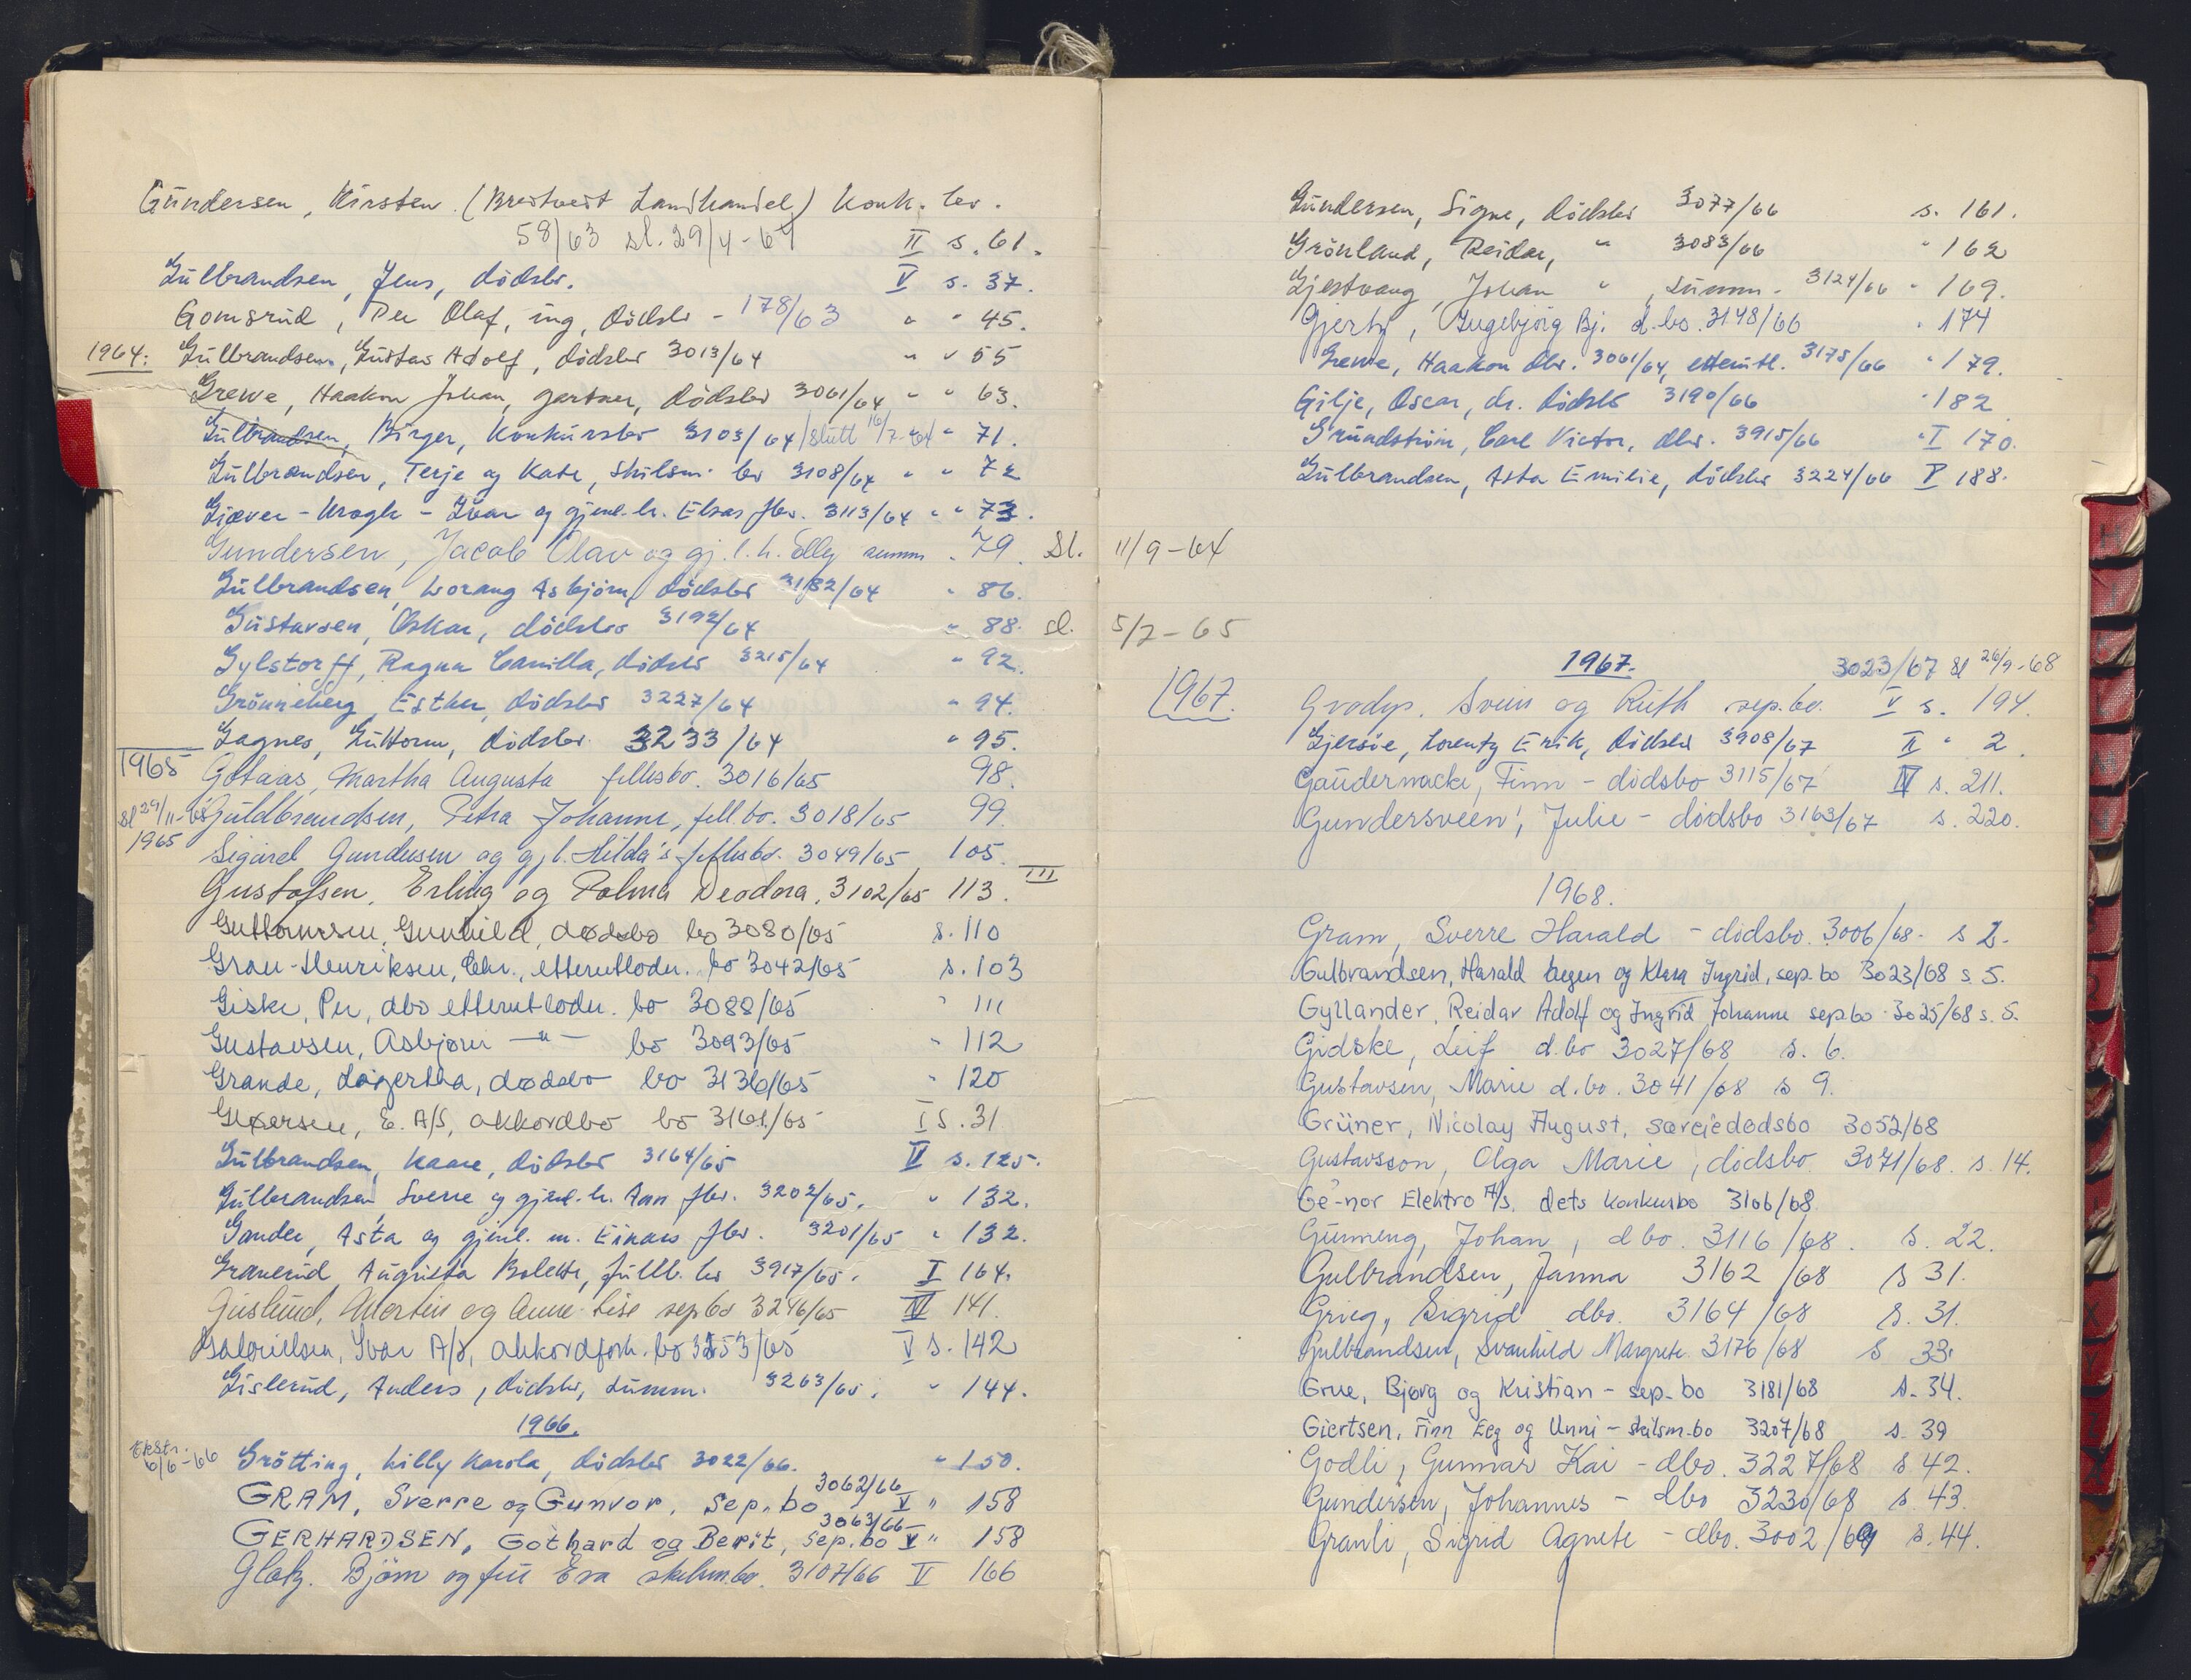 Gundersen, Kirsten (Breitveit Landhandel) Konk. bo.
58/63 sl. 29/4-64 II s. 61.
Gulbrandsen, Jens, dödsbo. V s. 37.
Gomsrud, Per Olaf, ing, dödsbo - 178/63 " " 45.
1964: Gulbrandsen, Gustav Adolf, dödsbo 3013/64 " " 55
Greve, Haakon Johan, gartner, dödsbo 3061/64 " " 63.
Gulbrandsen, Birger, Konkursbo 3103/64 /slutt 16/7-64 " 71.
Gulbrandsen, Terje og Kate, skilsm. bo 3108/64 " " 72
Gjæver-Krogh - Ivar og gjenl. h. Elsas fbo. 3113/64 " " 73.
Gundersen, Jacob Olav og gj. l. h. Elly summ. " 79. Sl. 11/9-64
Gulbrandsen, Asbjørn, dödsbo 3182/64 " 86.
Gustavsen, Oskar, dödsbo 3192/64 " 88. sl. 5/2-65
Gylstorff, Ragna Camilla, dödsbo 3215/64 " 92.
Grönneberg, Esther, dödsbo 3227/64 " 94.
Gagnes, Guttorm, dödsbo 3233/64 " 95.
1965 Götaas, Martha Augusta fellesbo. 3016/65 98.
sl 29/11-65 Guldbrandsen, Petra Johanne, fell.bo. 3018/65 99.
1965 Sigurd Gundersen og gjl. Hilda's fellesbo. 3049/65 105.
Gustafsen, Erling og Palma Deodora, 3102/65 113. III
Guttormsen, Gunhild, dødsbo bo 3080/65 s. 110
Grau-Henriksen, Chr., etterutlodn. bo 3042/65 s. 103
Giske, Per, dbo etterutlodn. bo 3088/65 " 111
Gustavsen, Asbjørn -"- bo 3093/65 " 112
Grande, Lagertha, dødsbo bo 3136/65 " 120
E. A/S, akkordbo bo 3161/65 I s. 31
Gulbrandsen, Kaare, dödsbo 3164/65 V s. 125.
Gulbrandsen, Sverre og gjenl. h. Ann fbo. 3202/65. " 132.
Gander, Asta og gjenl. m. Einars fbo. 3201/65 " 132.
Granerud, Augusta Bolette, fullb. bo 3917/65. I 164.
Guslund, Martin og Anne-Lise sepbo 3246/65 IV 141.
Gabrielsen, Ivar A/S, akkordforh. bo 3253/65 V s. 142
Gislerud, Anders, dödsbo, summ. 3263/65. " 144.
1966.
Ekstr. 6/6-66 Grötting, Lilly Karola, dödsbo 3022/66. " 150.
GRAM, Sverre og Gunvor, Sep. bo 3062/66 V " 158
GERHARDSEN, Gothard og Berit, sep. bo 3063/66 V " 158
Glatz. Björn og fru Eva skilsm.bo. 3107/66 V 166
Gundersen, Signe, dödsbo 3077/66 s. 161.
Grönland, Reidar, " 3083/66 " 162
Gjestvang, Johan " , summ. 3124/66 " 169.
Gjertz, Ingebjörg Bj. d.bo. 3148/66 " 174
Greve, Haakon dbo. 3061/64, etterutl. 3175/66 " 179.
Gilje, Oscar, dr. dödsbo 3190/66 " 182
Grundström, Carl Victor, dbo. 3915/66 " I 170.
Gulbrandsen, Asta Emilie, dödsbo 3224/66 V 188.
1967. 3023/67 sl 26/9-68
1967. Svein og Ruth sep.bo. V s. 194.
Gjersöe, Lorentz Erik, dödsbo 3908/67 II " 2.
Gaudernack, Finn - dödsbo 3115/67 IV s. 211.
Gundersveen, Julie - dödsbo 3163/67 s. 220.
1968.
Gram, Sverre Harald - dödsbo. 3006/68- s 2.
Gulbrandsen, Harald og Klara Ingrid, sep. bo 3023/68 s. 5.
Gyllander, Reidar Adolf og Ingrid Johanne sep.bo 3025/68 s. 5.
Gidske, Leif d.bo 3027/68 s. 6.
Gustavsen, Marie d.bo. 3041/68 s 9.
Grüner, Nicolay August, særeiedødsbo 3052/68
Gustavsson, Olga Marie, dödsbo 3071/68. s. 14.
Ge-nor Elektro A/s. dets konkursbo 3106/68.
Johan, d bo. 3116/68. s. 22.
Gulbrandsen, Janna 3162/68 s 31.
Grieg, Sigrid dbo. 3164/68 s. 31.
Gulbrandsen, Svanhild Margrete 3176/68 s 33.
Grue, Bjørg og Kristian - sep. bo 3181/68 s. 34.
Giertsen, Finn Eeg og Unni - skilsm.bo 3207/68 s. 39
Godli, Gunnar Kai - dbo. 3227/68 s 42.
Gundersen, Johannes - dbo 3230/68 s. 43.
Granli, Sigrid Agnete - dbo. 3002/69 s. 44.